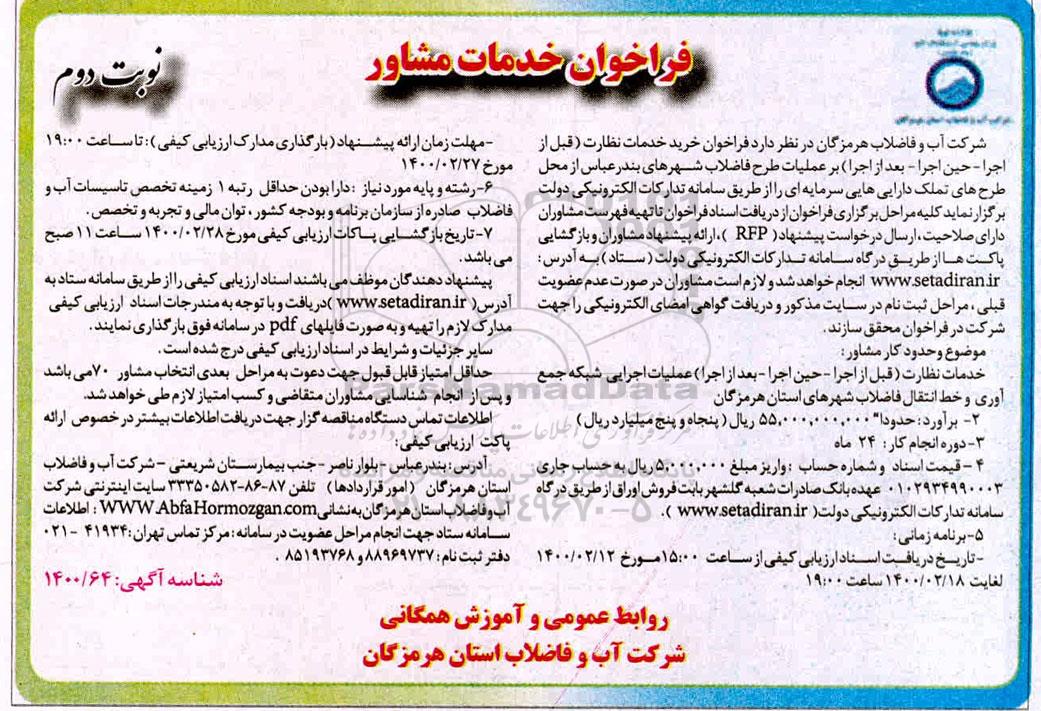 فراخوان خدمات مشاور
نوبت دوم
شرکت آب و فاضلاب هرمزگان در نظر دارد فراخوان خرید خدمات نظارت (قبل از
اجرا - حین اجرا - بعد از اجرا) بر عملیات طرح فاضلاب شهرهای بندرعباس از محل
طرح های تملک دارایی هایی سرمایه ای را از طریق سامانه تدارکات الکترونیکی دولت
برگزار نماید کلیه مراحل برگزاری فراخوان از دریافت اسناد فراخوان تا تهیه فهرست مشاوران
دارای صلاحیت، ارسال درخواست پیشنهاد( RFP )، ارائه پیشنهاد مشاوران و بازگشایی
پاکت ها از طریق درگاه سامانه تدارکات الکترونیکی دولت ( ستاد ) به آدرس:
www.setadiran.ir انجام خواهد شد و لازم است مشاوران در صورت عدم عضویت
قبلی، مراحل ثبت نام در سایت مذکور و دریافت گواهی امضای الکترونیکی را جهت
شرکت در فراخوان محقق سازند.
موضوع و حدود کار مشاور:
خدمات نظارت ( قبل از اجرا - حین اجرا - بعد از اجرا ) عملیات اجرایی شبکه جمع
آوری و خط انتقال فاضلاب شهرهای استان هرمزگان
۲- برآورد: حدودا" ۵۵,۰۰۰,۰۰۰,۰۰۰ ریال ( پنجاه و پنج میلیارد ریال )
۳- دوره انجام کار: ۲۴ ماه
۴- قیمت اسناد و شماره حساب : واریز مبلغ ۵,۰۰۰,۰۰۰ ریال به حساب جاری
۰۱۰۲۹۳۴۹۹۰۰۰۳ عهده بانک صادرات شعبه گلشهر بابت فروش اوراق از طریق درگاه
سامانه تدارکات الکترونیکی دولت( www.setadiran.ir ).
۵- برنامه زمانی:
- تاریخ دریافت اسناد ارزیابی کیفی از ساعت ۱۵:۰۰ مورخ ۱۴۰۰/۰۲/۱۲
لغایت ۱۴۰۰/۰۲/۱۸ ساعت ۱۹:۰۰
- مهلت زمان ارائه پیشنهاد (بارگذاری مدارک ارزیابی کیفی): تا ساعت ۱۹:۰۰
مورخ ۱۴۰۰/۰۲/۲۷
۶- رشته و پایه مورد نیاز : دارا بودن حداقل رتبه ۱ زمینه تخصص تاسیسات آب و
فاضلاب صادره از سازمان برنامه و بودجه کشور، توان مالی و تجربه و تخصص.
۷- تاریخ بازگشایی پاکات ارزیابی کیفی مورخ ۱۴۰۰/۰۲/۲۸ ساعت ۱۱ صبح
می باشد.
پیشنهاد دهندگان موظف می باشند اسناد ارزیابی کیفی را از طریق سامانه ستاد به
آدرس( www.setadiran.ir )دریافت و با توجه به مندرجات اسناد ارزیابی کیفی
مدارک لازم را تهیه و به صورت فایلهای pdf در سامانه فوق بارگذاری نمایند.
سایر جزئیات و شرایط در اسناد ارزیابی کیفی درج شده است.
حداقل امتیاز قابل قبول جهت دعوت به مراحل بعدی انتخاب مشاور ۷۰ می باشد
و پس از انجام شناسایی مشاوران متقاضی و کسب امتیاز لازم طی خواهد شد.
اطلاعات تماس دستگاه مناقصه گزار جهت دریافت اطلاعات بیشتر در خصوص ارائه
پاکت ارزیابی کیفی:
آدرس: بندرعباس - بلوار ناصر - جنب بیمارستان شریعتی - شرکت آب و فاضلاب
استان هرمزگان (امور قراردادها) تلفن ۸۷-۸۶-۳۳۳۵۰۵۸۲ سایت اینترنتی شرکت
آب و فاضلاب استان هرمزگان به نشانی WWW.AbfaHormozgan.com : اطلاعات
سامانه ستاد جهت انجام مراحل عضویت در سامانه: مرکز تماس تهران: ۴۱۹۳۴ -۰۲۱
دفتر ثبت نام: ۸۸۹۶۹۷۳۷ و ۸۵۱۹۳۷۶۸
شناسه آگهی: ۱۴۰۰/۶۴
روابط عمومی و آموزش همگانی
شرکت آب و فاضلاب استان هرمزگان
ParsNamadData